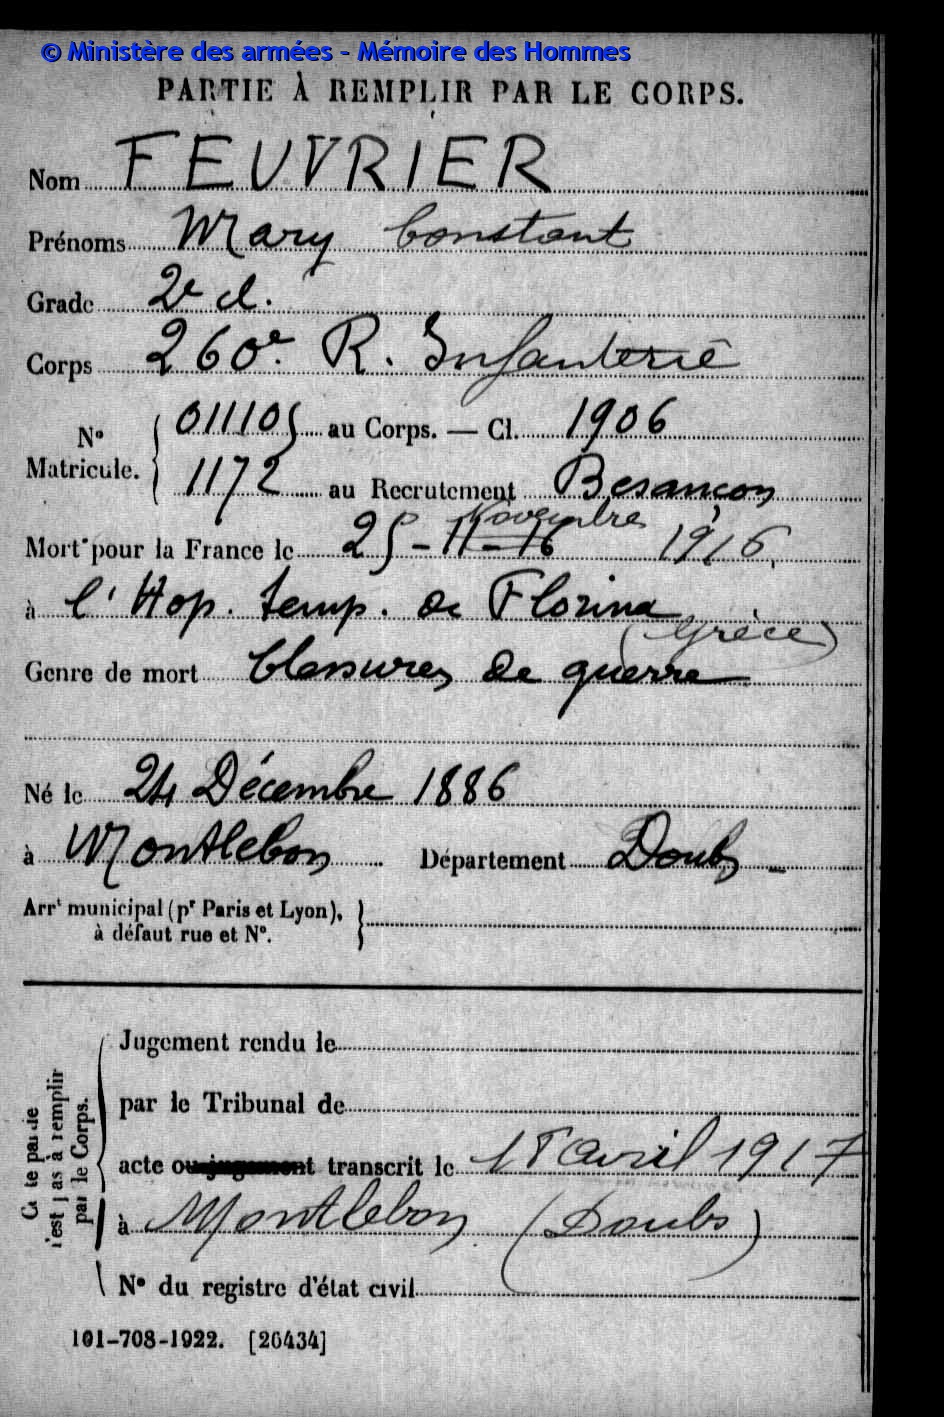 © Ministère des armées - Mémoire des Hommes
PARTIE À REMPLIR PAR LE CORPS.
Nom FEUVRIER
Prénoms Mary Constant
Grade 2e cl.
Corps 260e R. Infanterie
No Matricule. 011105 au Corps. — Cl. 1906
1172 au Recrutement Besançon
Novembre
Mort pour la France le 25-11-16 1916
à l'Hop. temp. de Florina
(Grèce)
Genre de mort blessures de guerre
Né le 24 Décembre 1886
à Montlebon Département Doubs
Arrt municipal (pr Paris et Lyon),
à défaut rue et No.
Cette partie n'est pas à remplir par le Corps.
Jugement rendu le
par le Tribunal de
acte ou jugement transcrit le avril 1917
à Montlebon (Doubs)
No du registre d'état civil
101-708-1922. [26434]